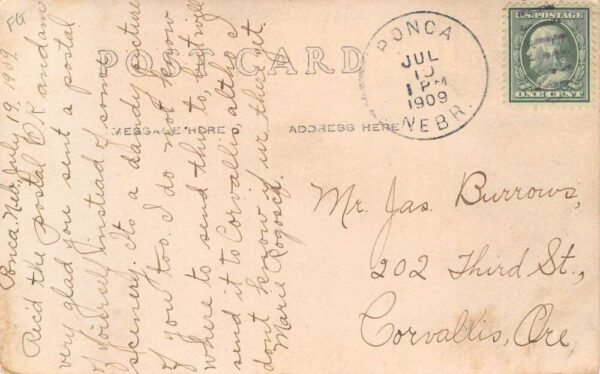 FG
POST CARD
PONCA
JUL
1 PM
1909
NEBR.
U.S. POSTAGE
ONE CENT
MESSAGE HERE
ADDRESS HERE
Ponca, Neb, July 19, 1909.
Rec'd the postal OK and am
very glad you sent a postal
of yourself instead of some
scenery. Its a dandy picture
of you too. I do not know
where to send this to, but will
send it to Corvallis, altho I
dont know if ur there yet.
Marie
Mr. Jas. Burrows,
202 Third St.,
Corvallis, Ore